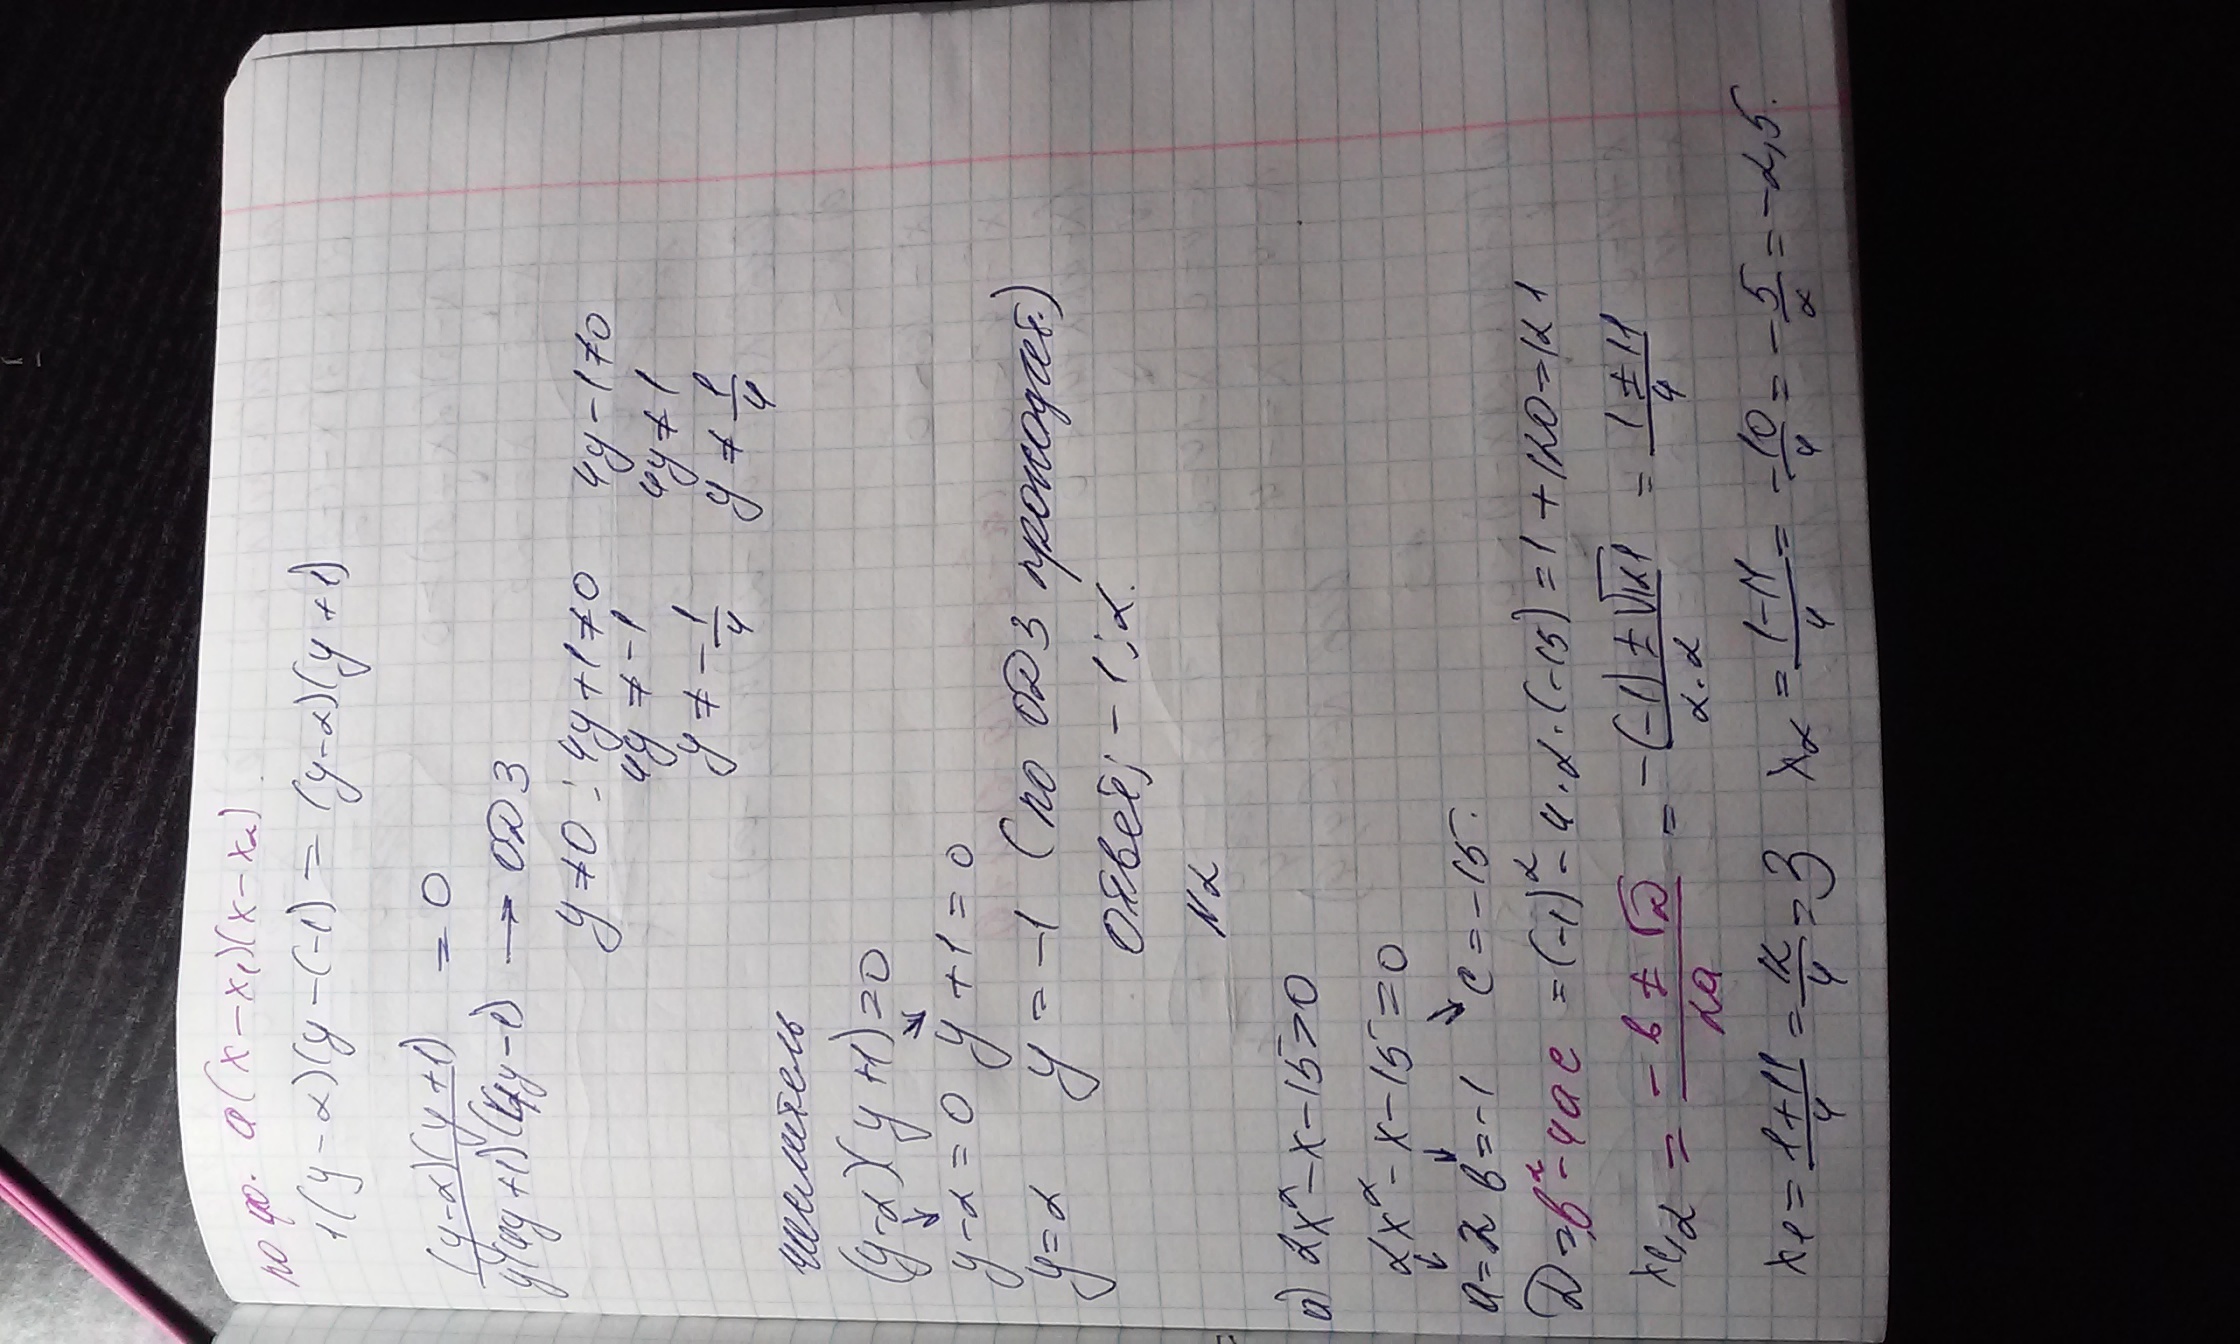 по фо. a(x-x₁)(x-x₂)
1(y-2)(y-(-1)=(y-2)(y+1)
(y-2)(y+1)/y(4y+1)(4y-1) =0
→ ОДЗ
y≠0 4y+1≠0 4y-1≠0
4y≠-1 4y≠1
y≠-1/4 y≠1/4
числитель
(y-2)(y+1)=0
y-2=0 y+1=0
y=2 y=-1 (по ОДЗ проходят.)
ответ; -1; 2.
N2
а) 2x²-x-15>0
2x²-x-15=0
a=2 b=-1 c=-15.
D=b²-4ac =(-1)²-4·2·(-15)=1+120=121
x₁,₂ = -b±√D/2a = -(-1)±√121/2·2 = 1±11/4
x₁=1+11/4=12/4=3 x₂=1-11/4=-10/4=-5/2=-2,5.